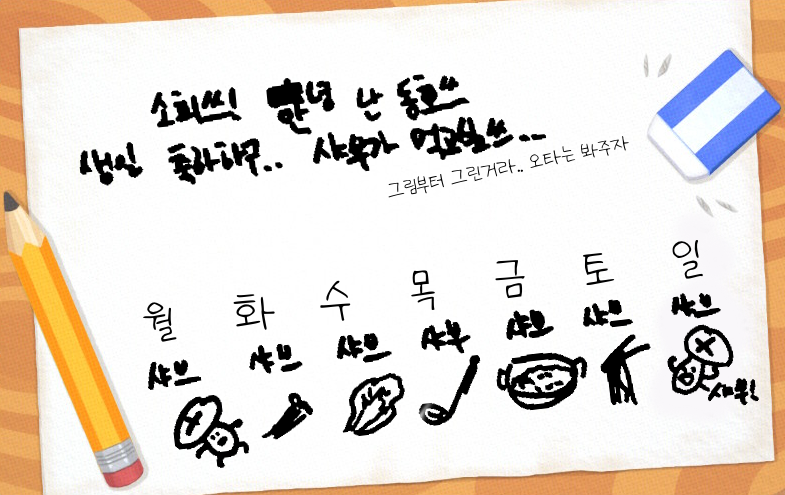 소희씩 안녕 난 동호쓰
생일 축하하구.. 샤부가 먹고싶쓰...
그림부터 그린거라.. 오타는 봐주자
월 화 수 목 금 토 일
샤브 샤브 샤브 샤부 샤브 샤브 샤브
샤부!